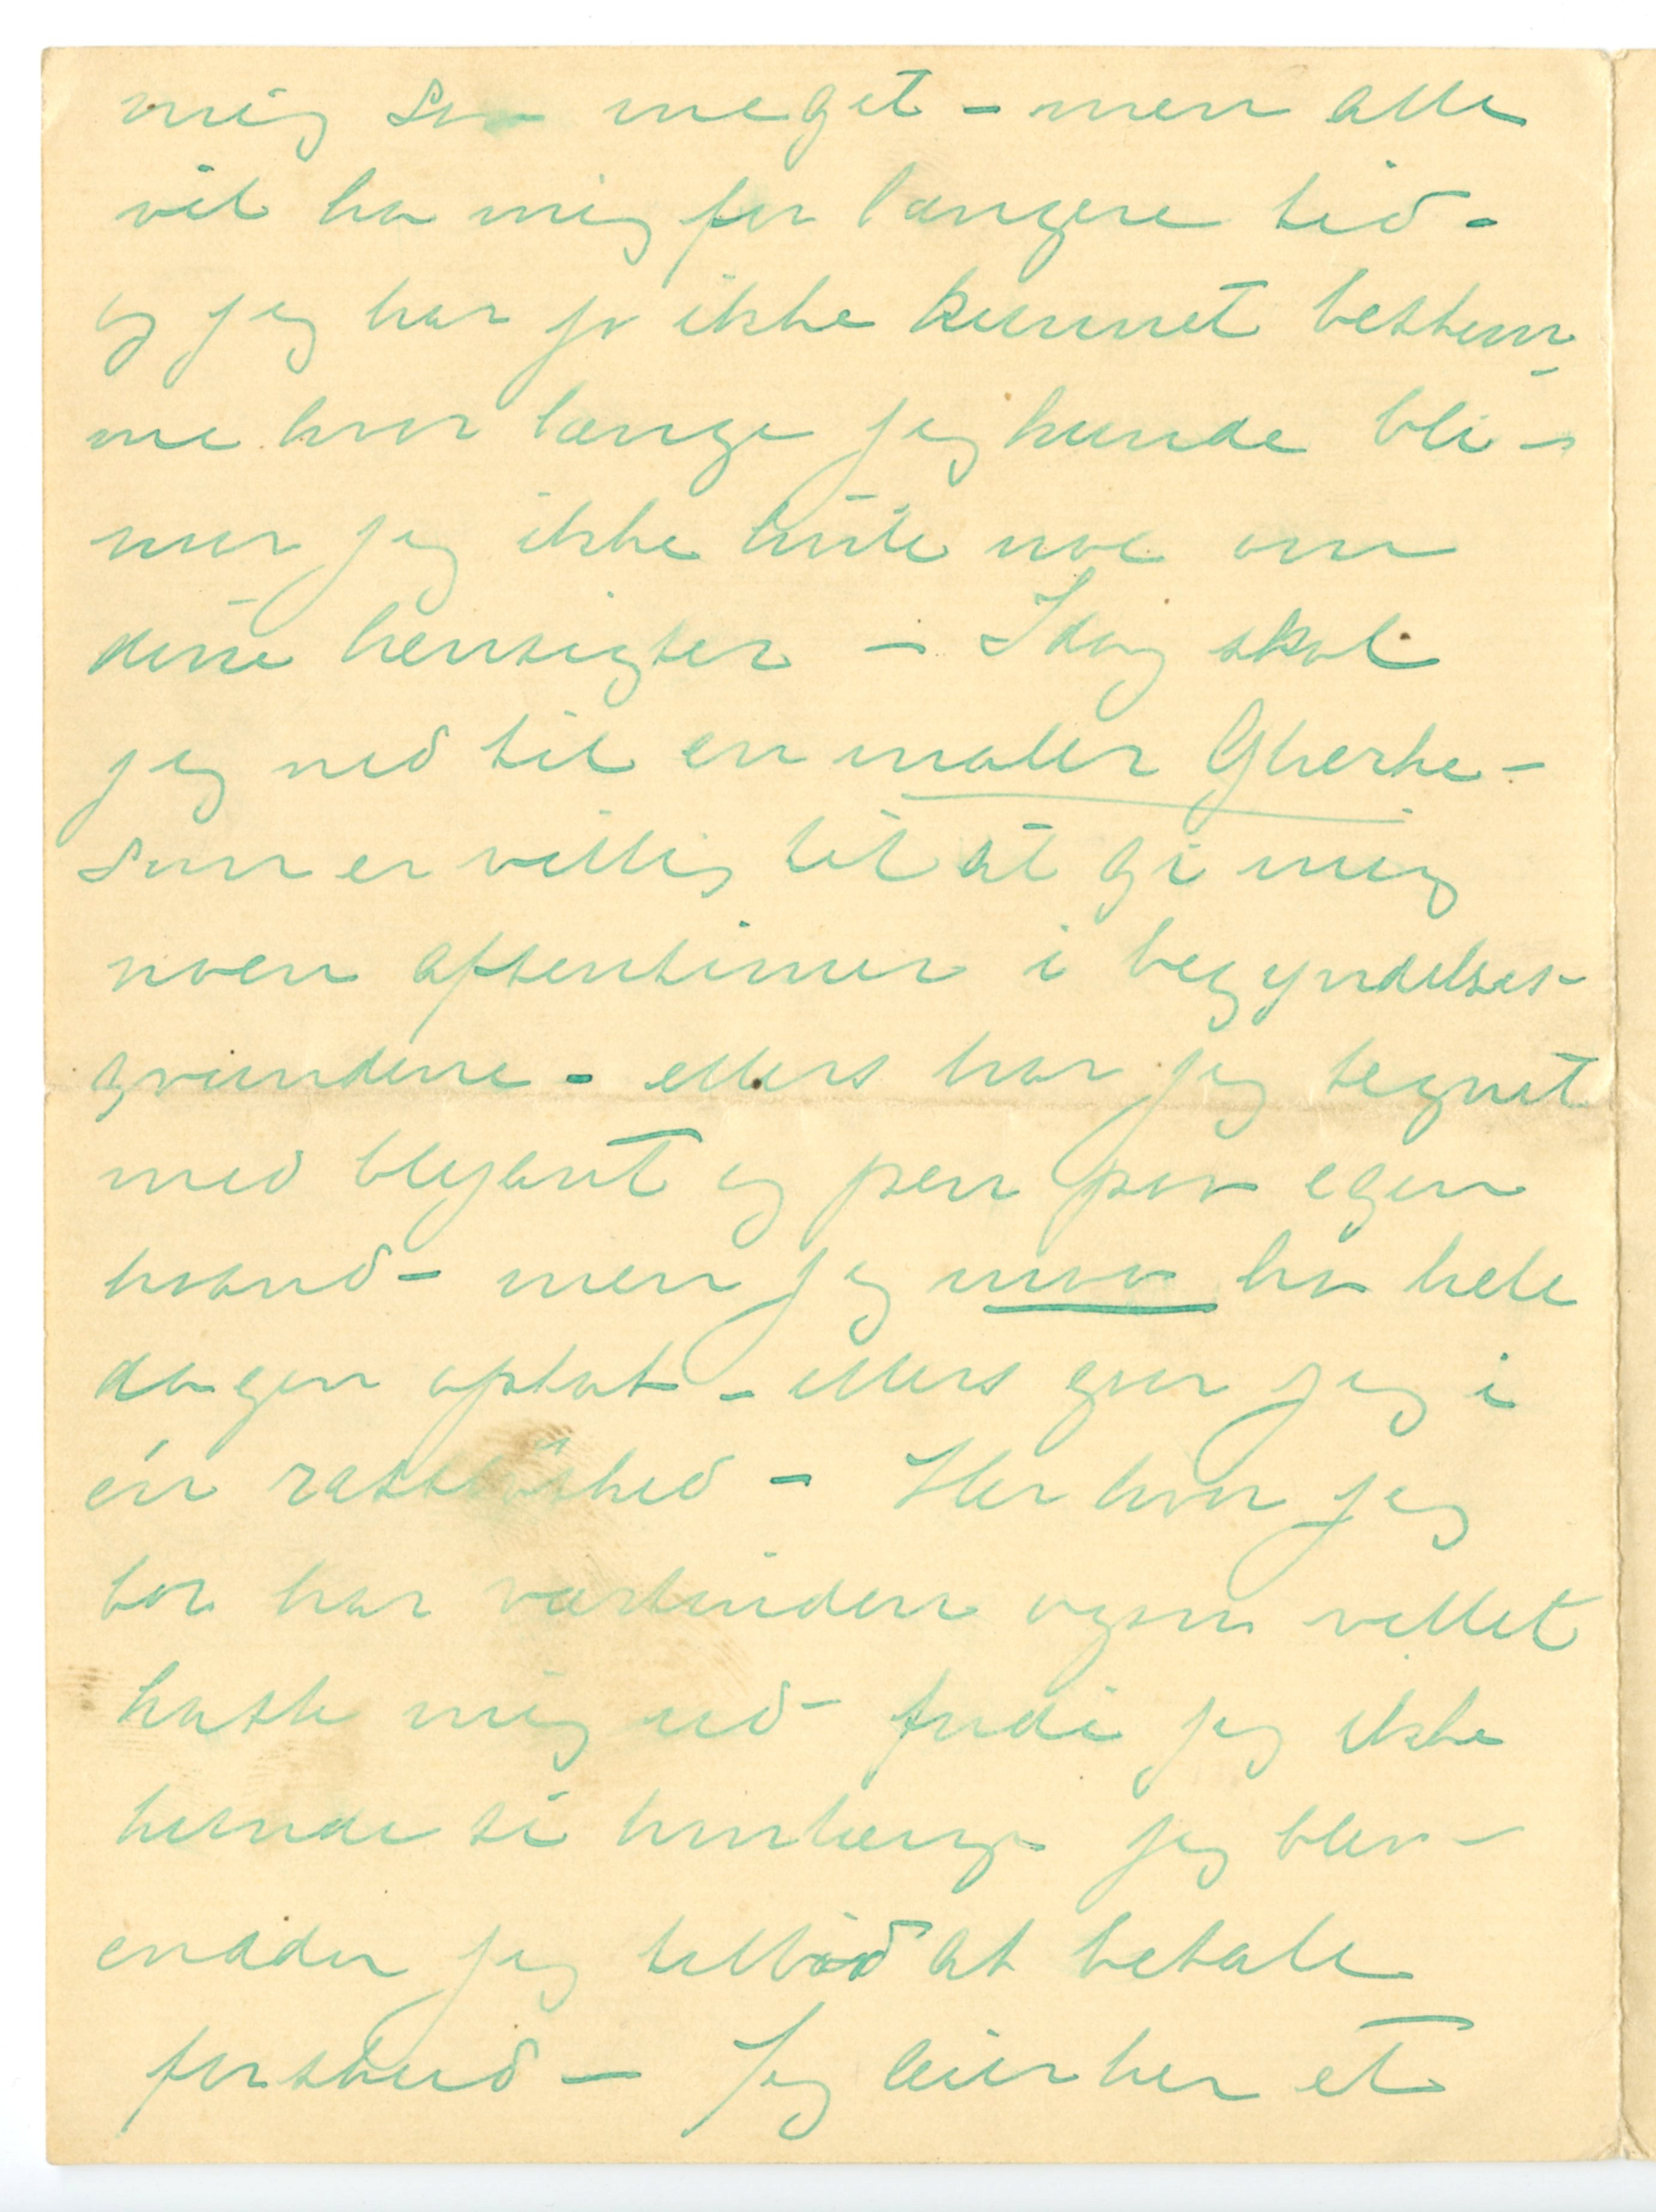 mig saa meget – men alle
vil ha mig for længere tid –
og jeg har jo ikke kunnet bestem-
me hvor længe jeg kunde bli –
naar jeg ikke vidste noe om
dine hensigter – Idag skal
jeg ned til en maler Gherke –
som er villig til at gi mig
noen aftentimer i begyndelses-
grundene – ellers har jeg tegnet
med blyant og pen paa egen
haand – men jeg maa ha hele
dagen optat – ellers gaar jeg i
én rastløshed – Her hvor jeg
bor har værtinden ogsaa villet
kaste mig ud – fordi jeg ikke
kunde si hvorlænge jeg blev –
endda jeg tilbød at betale
forskud – Jeg leier her et